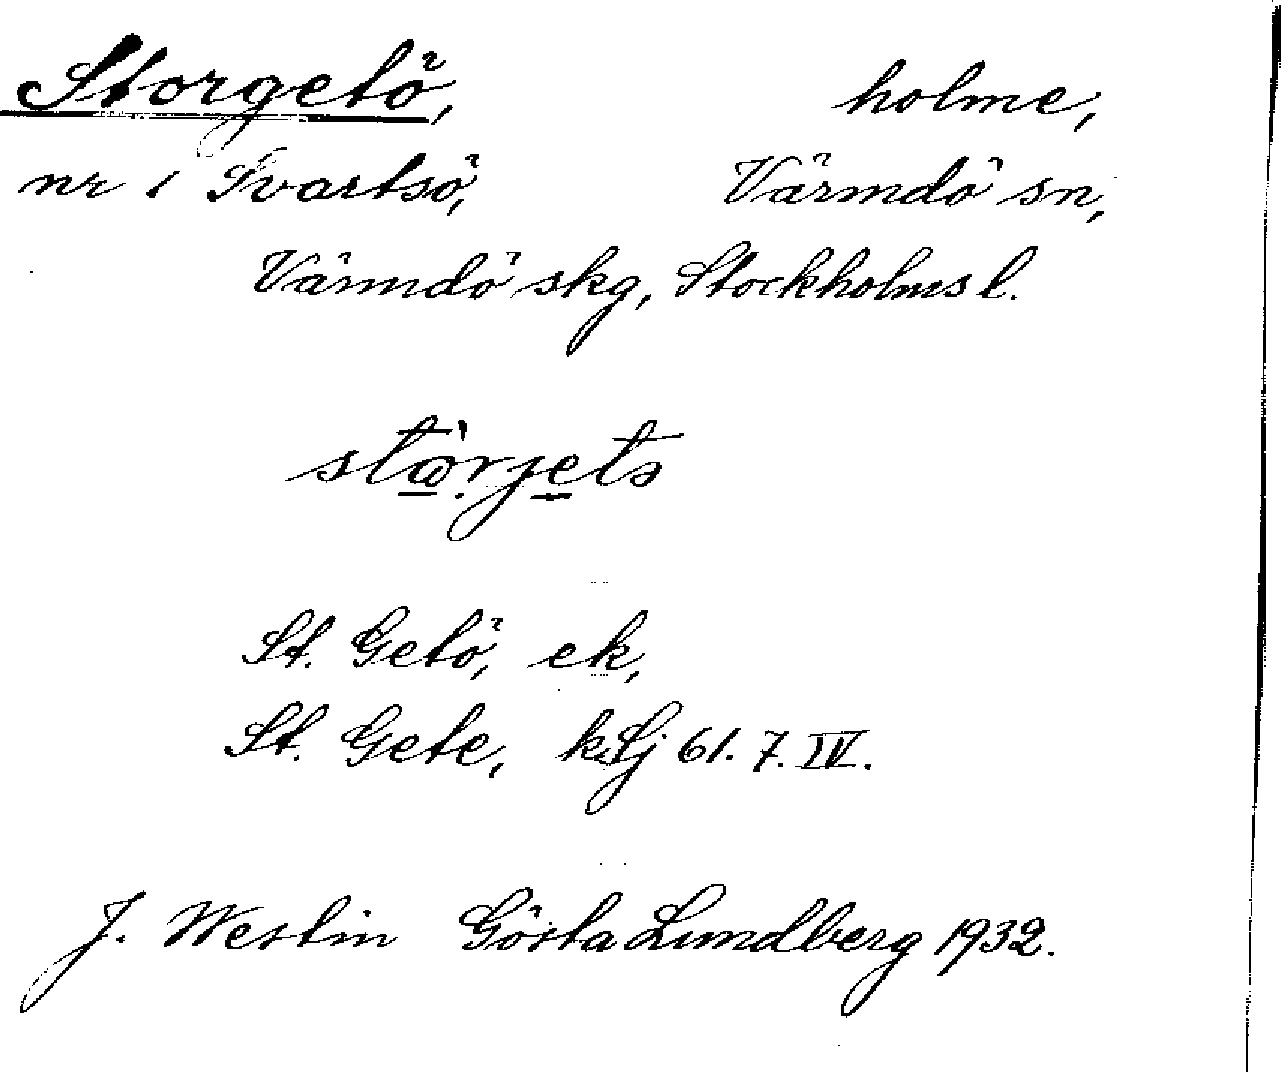 Storgetö, holme,
nr 1 Svartsö, Värmdö sn,
Värmdö skg, Stockholms l.
stὼrjetə
St. Getö, ek,
St. Gete, kSj 61. 7. IV.
J. Westin Gösta Lundberg 1932.